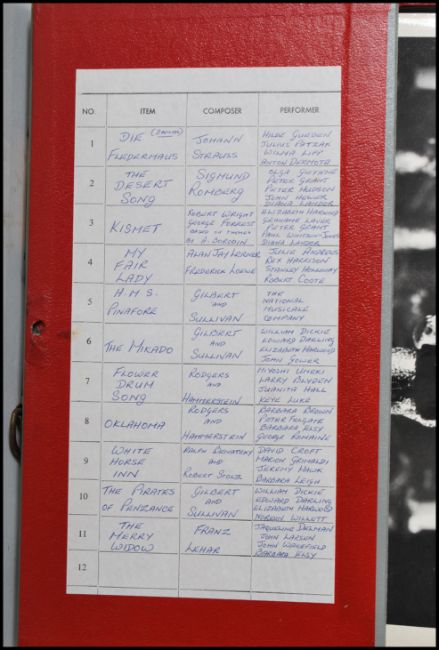 NO. ITEM COMPOSER PERFORMER
1 DIE FLEDERMAUS JOHANN STRAUSS HILDE GUEDEN JULIUS PATZAK WILMA LIPP ANTON DERMOTA
2 THE DESERT SONG SIGMUND ROMBERG OLGA GWYNNE PETER GRANT PETER HUDSON JOHN HEWER DIANA LANDOR
3 KISMET ROBERT WRIGHT GEORGE FORREST BASED ON THEMES BY A. BORODIN ELIZABETH HARWOOD GRAHAME LAVER PETER GRANT PAUL WHITSUN-JONES DIANA LANDOR
4 MY FAIR LADY ALAN JAY LERNER FREDERICK LOEWE JULIE ANDREWS REX HARRISON STANLEY HOLLOWAY ROBERT COOTE
5 H.M.S. PINAFORE GILBERT AND SULLIVAN THE NATIONAL MUSICALE COMPANY
6 THE MIKADO GILBERT AND SULLIVAN WILLIAM DICKIE EDWARD DARLING ELIZABETH HARWOOD JOHN GOWER
7 FLOWER DRUM SONG RODGERS AND HAMMERSTEIN MIYOSHI UMEKI LARRY BLYDEN JUANITA HALL KEYE LUKE
8 OKLAHOMA RODGERS AND HAMMERSTEIN BARBARA BROWN PETER FELGATE BARBARA ELSY GEORGE ROMAINE
9 WHITE HORSE INN RALPH BENATSKY AND ROBERT STOLZ DAVID CROFT MARION GRIMALDI JEREMY HAWK BARBARA LEIGH
10 THE PIRATES OF PENZANCE GILBERT AND SULLIVAN WILLIAM DICKIE EDWARD DARLING ELIZABETH HARWOOD NOREEN WILLETT
11 THE MERRY WIDOW FRANZ LEHAR JAQUELINE DELMAN JOHN LARSEN JOHN WAKEFIELD BARBARA ELSY
12